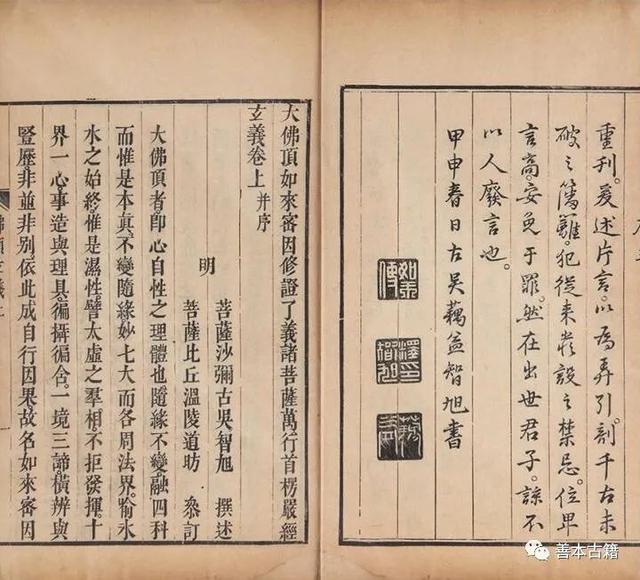 重刊。爰述片言。以為弄引。剖千古未
破之藩籬。犯從來設之禁忌。位卑
言高。安免于罪。然在出世君子。諒不
以人廢言也。
甲申春日古吳蕅益智旭書
大佛頂如來審因修證了義諸菩薩萬行首楞嚴經
玄義卷上 并序
明
菩薩沙彌古吳智旭 撰述
菩薩比丘溫陵道昉 叅訂
大佛頂者即心自性之理體也隨緣不變融四科
而惟是本真不變隨緣妙七大而各周法界喻水
水之始終惟是濕性譬太虛之羣相不拒發揮十
界一心事造與理具徧攝徧含一境三諦橫辨與
豎歷非並非別依此成自行因果故名如來審因
佛頂玄義上
善本古籍